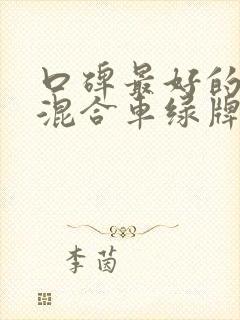 口碑最好的
混合车绿牌
李茵